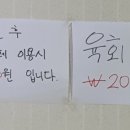 추
이용시
원 입니다.
육회
₩20